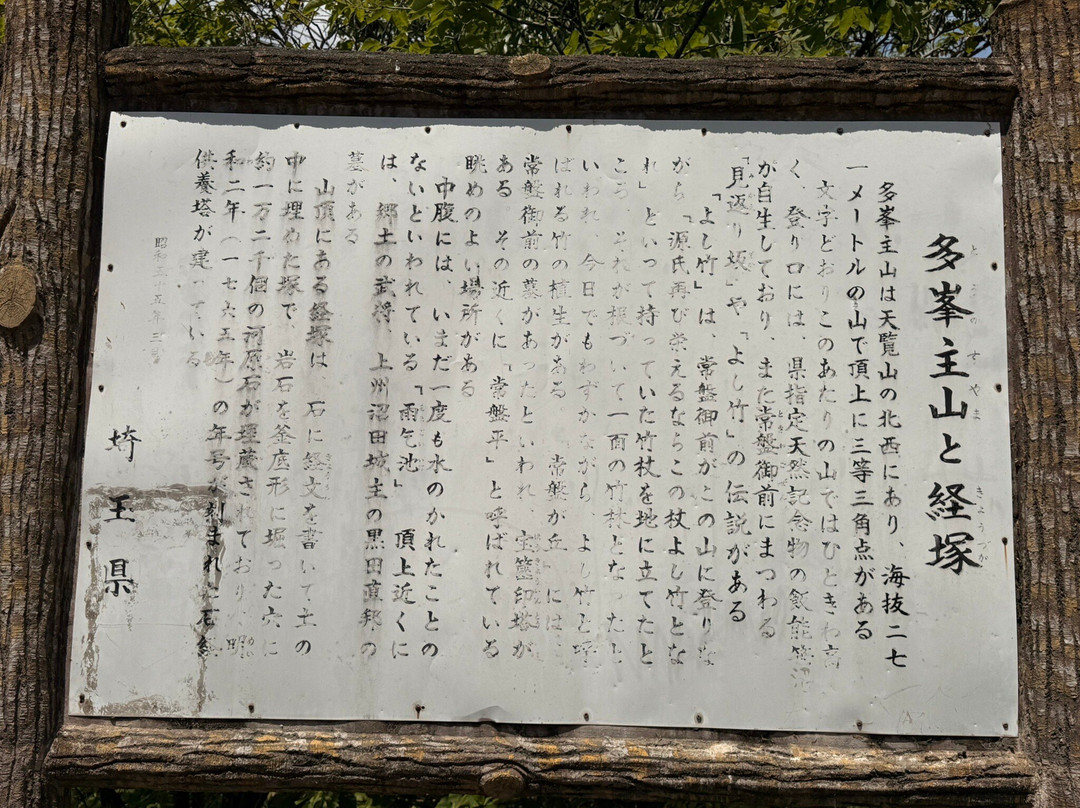 多峯主山と経塚
とうのすやま
きょうづか
多峯主山は天覧山の北西にあり、海抜二七
一メートルの山で頂上に三等三角点がある
文字どおりこのあたりの山ではひときわ高
く、登り口には、県指定天然記念物の飯能笹沼
が自生しており、また常盤御前にまつわる
「見返り坂」や「よし竹」の伝説がある
「よし竹」は、常盤御前がこの山に登りな
がら「源氏再び栄えるならこの杖よし竹とな
れ」といって持っていた竹杖を地に立てたと
ころ、それが根づいて一面の竹林となったと
いわれ、今日でもわずかながら よし竹と
ばれる竹の植生がある 常盤が丘 には
常盤御前の墓があったといわれ 宝篋印塔が
ある その近くに「常盤平」と呼ばれている
眺めのよい場所がある
中腹には、いまだ一度も水のかれたことの
ないといわれている「雨乞池」 頂上近くに
は、郷土の武将 上州沼田城主の黒田直邦の
墓がある
山頂にある経塚は 石に経文を書いて土の
中に埋めた塚で 岩石を釜底形に堀った穴に
約一万二千個の河原石が埋蔵されており、明
和二年(一七六五年)の年号が刻まれた石
供養塔が建っている
昭和五十五年三月
埼玉県